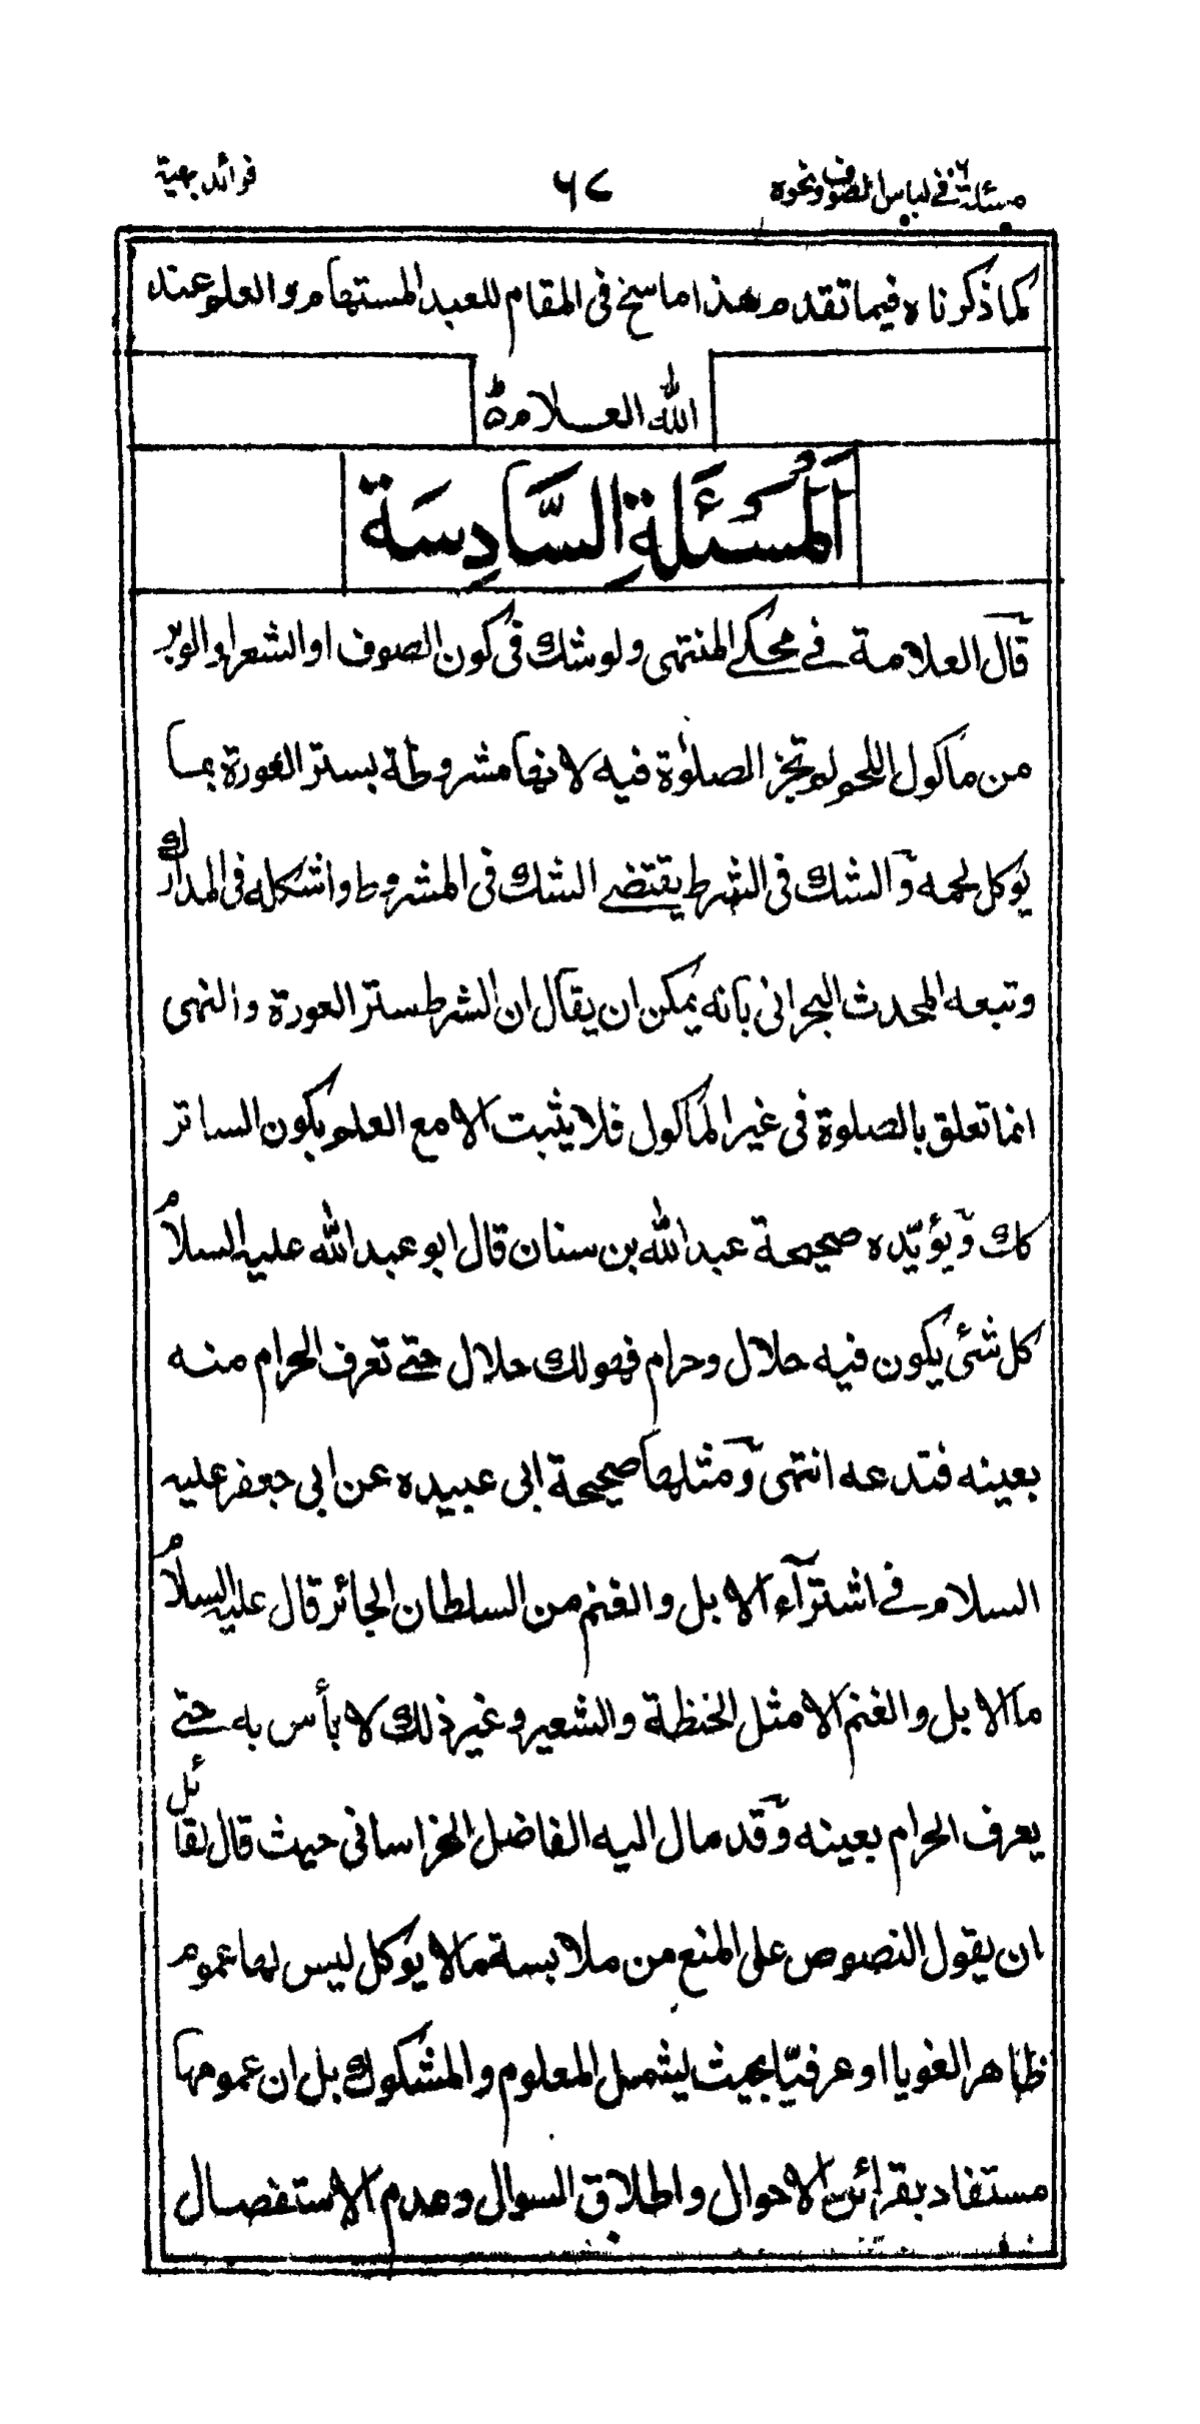 مسئلة ٦ في لباس الصوف ونحوه
٦٧
فوائد بهية
كما ذكرناه فيما تقدم هذا ما سنح في المقام للعبد المستهام والعلم عند
الله العلامة
اَلْمَسْئَلَةِ السَّادِسَة
قال العلامة في محكي المنتهى ولو شك في كون الصوف او الشعر او الوبر
من ماكول اللحم لم تجز الصلوٰة فيه لانها مشروطة بستر العورة بما
يوكل لحمه والشك في الشرط يقتضي الشك في المشروط واشكله في المدارك
وتبعه المحدث البحراني بانه يمكن ان يقال ان الشرط ستر العورة والنهى
انما تعلق بالصلوة في غير المأكول فلا يثبت الا مع العلم بكون الساتر
كك ويؤيّده صحيحة عبد الله بن سنان قال ابو عبد الله عليه السلام
كل شئ يكون فيه حلال وحرام فهو لك حلال حتى تعرف الحرام منه
بعينه فتدعه انتهى ومثلها صحيحة ابى عبيده عن ابى جعفر عليه
السلام في اشترآء الابل والغنم من السلطان الجائر قال عليه السلام
ما الابل والغنم الا مثل الحنظة والشعير وغير ذلك لا بأس به حتى
يعرف الحرام بعينه وقد مال اليه الفاضل الخراسانى حيث قال لقائل
ان يقول النصوص على المنع من ملابسة مالا يوكل ليس لها عموم
ظاهر الغويا او عرفيّا بحيث ليشمل المعلوم والمشكوك بل ان عمومها
مستفاد بقرائن الاحوال واطلاق السوال وعدم الاستفصال